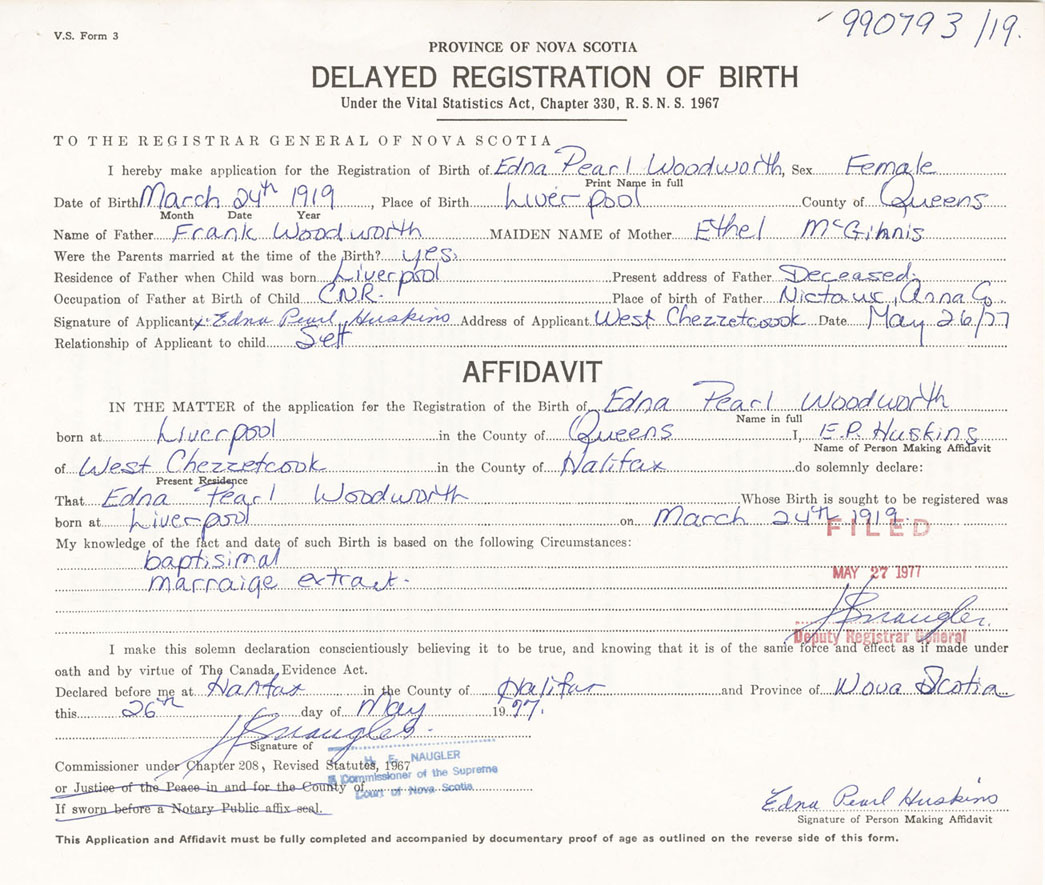 V.S. Form 3
990793/19.
PROVINCE OF NOVA SCOTIA
DELAYED REGISTRATION OF BIRTH
Under the Vital Statistics Act, Chapter 330, R. S. N. S. 1967
TO THE REGISTRAR GENERAL OF NOVA SCOTIA
I hereby make application for the Registration of Birth of Edna Pearl Woodworth, Sex Female
Print Name in full
Date of Birth March 24th 1919, Place of Birth Liverpool County of Queens
Month Date Year
Name of Father Frank Woodworth MAIDEN NAME of Mother Ethel McGinnis
Were the Parents married at the time of the Birth? yes.
Residence of Father when Child was born Liverpool Present address of Father Deceased.
Occupation of Father at Birth of Child CNR. Place of birth of Father Nictaux, Anna Co.
Signature of Applicant x Edna Pearl Huskins Address of Applicant West Chezzetcook Date May 26/77
Relationship of Applicant to child Self
AFFIDAVIT
IN THE MATTER of the application for the Registration of the Birth of Edna Pearl Woodworth
Name in full
born at Liverpool in the County of Queens I, E.P. Huskins
Name of Person Making Affidavit
of West Chezzetcook in the County of Halifax do solemnly declare:
Present Residence
That Edna Pearl Woodworth Whose Birth is sought to be registered was
born at Liverpool on March 24th 1919.
FILED
My knowledge of the fact and date of such Birth is based on the following Circumstances:
baptisimal
marraige extract.
MAY 27 1977
Deputy Registrar General
I make this solemn declaration conscientiously believing it to be true, and knowing that it is of the same force and effect as if made under
oath and by virtue of The Canada Evidence Act.
Declared before me at Halifax in the County of Halifax and Province of Nova Scotia
this 26th day of May 1977.
Signature of
H. E. NAUGLER
A Commissioner of the Supreme
Court of Nova Scotia
Commissioner under Chapter 208, Revised Statutes, 1967
or Justice of the Peace in and for the County of
If sworn before a Notary Public affix seal.
Edna Pearl Huskins
Signature of Person Making Affidavit
This Application and Affidavit must be fully completed and accompanied by documentary proof of age as outlined on the reverse side of this form.